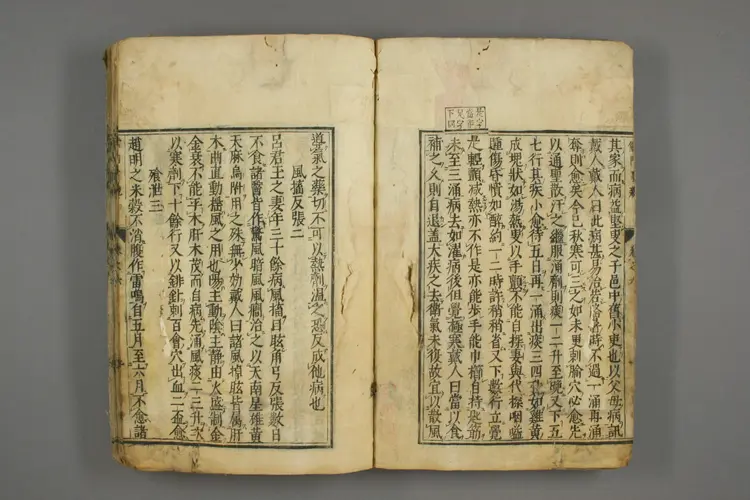 其家而病益堅叟之子邑中舊小吏也以父母病訊
戴人戴人曰此病甚易治若隆暑時不過一涌再涌
奪則愈矣今已秋寒可三之如未更刺腧穴必愈先
以通聖散汗之繼服涌劑則痰一二升至晚又下五
七行其疾小愈待五日再一涌出痰三四升如雞黃
成塊狀如湯熱叟以手顫不能自探妻與代探咽嗌
腫傷昏憒如醉約一二時許稍稍省又下數行立覺
足輕顫減熱亦不作足亦能步手能巾櫛自持匙筯
未至三涌病去如濯病後但覺極寒戴人曰當以食
補之久則自退蓋大疾之去衛氣未復故宜以散風
導氣之藥切不可以熱劑溫之恐反成他病也
風搐反張二
呂君玉之妻年三十餘病風搐目眩角弓反張數日
不食諸醫皆作驚風暗風風癇治之以天南星雄黃
天麻烏附用之殊無少効戴人曰諸風掉眩皆屬肝
木曲直動搖風之用也陽主動陰主靜由火盛制金
金衰不能平木肝木茂而自病先涌風痰二三升次
以寒劑下十餘行又以䤵針刺百會穴出血二盃愈
飱泄三
趙明之米穀不消腹作雷鳴自五月至六月不愈諸